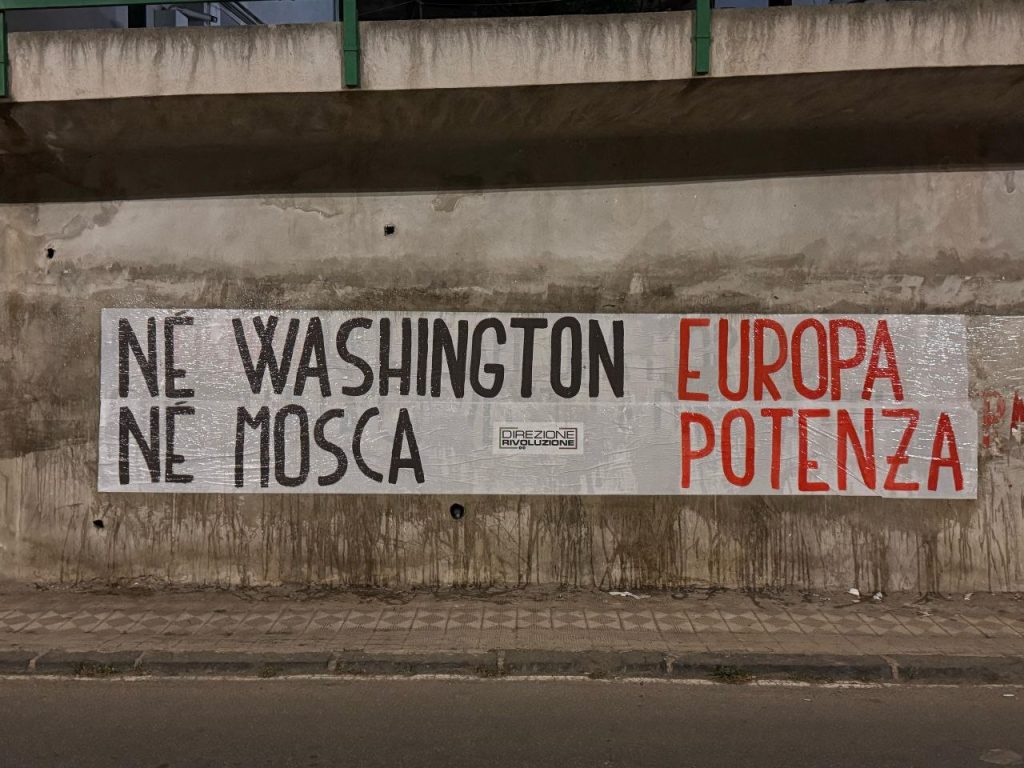 NÉ WASHINGTON EUROPA
NÉ MOSCA POTENZA
DIREZIONE
RIVOLUZIONE